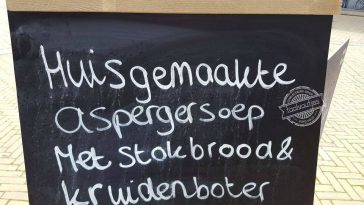 Huisgemaakte
aspergersoep
Met Stokbrood &
kruidenboter
taalvoutjes